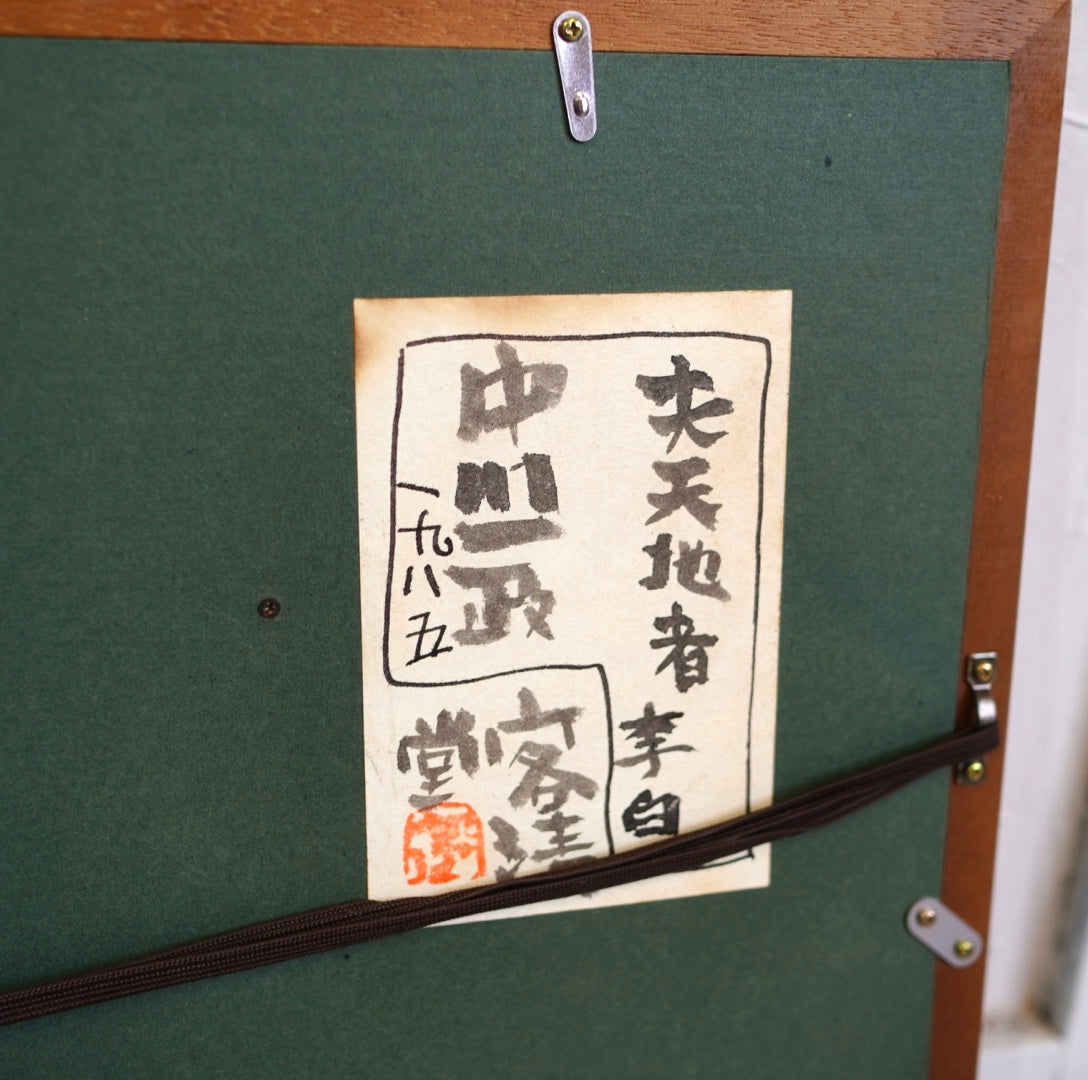 夫天地者 李白
中川一政
一九八五
客
堂